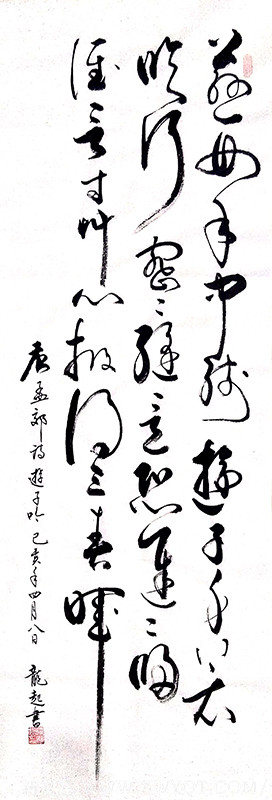 慈母手中線遊子身上衣
臨行密〻縫意恐遲〻歸
誰言寸草心報得三春暉
唐孟郊詩遊子吟己亥年四月八日 龍起書